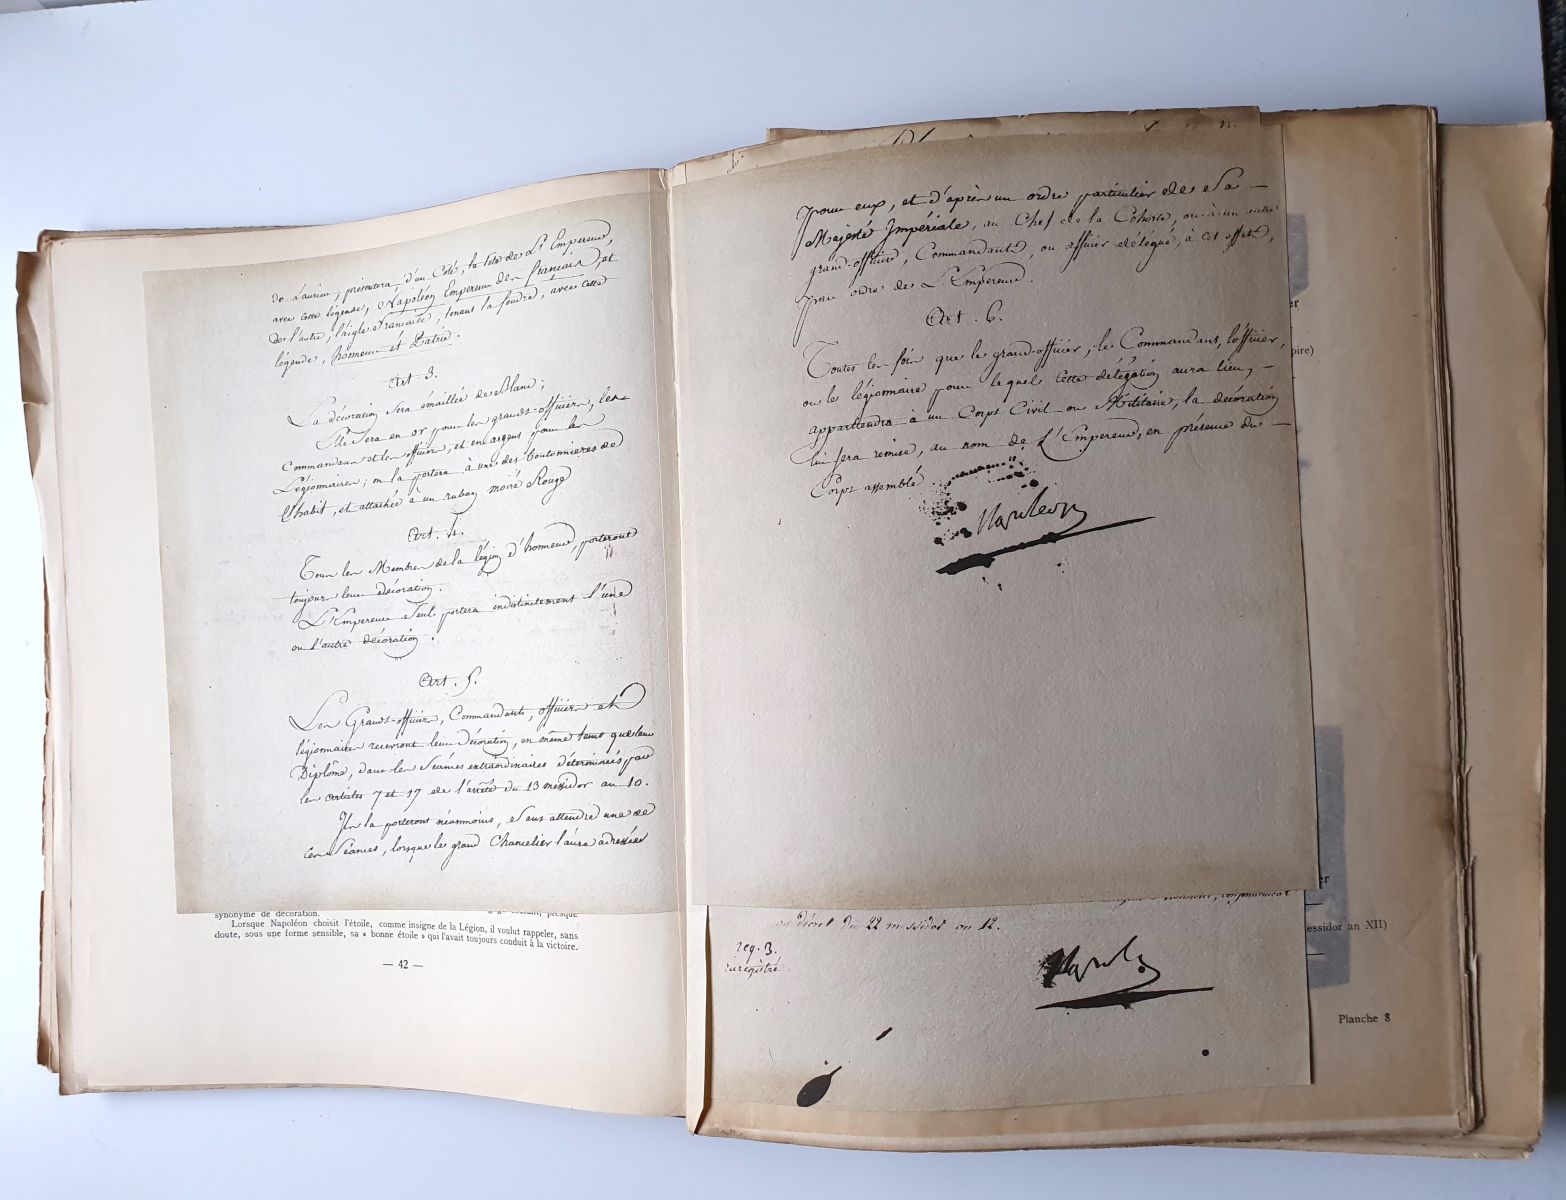 de Laurier, présentera d'un Côté, la tête de L'Empereur,
avec cette légende, Napoléon Empereur des français, et
de l'autre, l'aigle française, tenant la foudre, avec cette
légende, honneur et Patrie.
Art. 3.
La décoration sera émaillée de Blanc;
Elle sera en or pour les grands-officiers, les
Commandans et les officiers, et en argent pour les
Légionnaires; on la portera à une des boutonnieres de
l'habit, et attachée à un ruban moiré Rouge
Art. 4.
Tous les Membres de la légion d'honneur, porteront
toujours leur décoration.
L'Empereur Seul portera indistinctement l'une
ou l'autre décoration.
Art. 5.
Les Grands-officiers, Commandants, officiers et
légionnaires recevront leur Décoration, en même tems que leur
Diplôme, dans les Séances extraordinaires déterminées par
les articles 7 et 17 de l'arrêté du 13 messidor an 10.
Ils la porteront néanmoins, Sans attendre une de
ces Séances, lorsque le grand Chancelier l'aura adressée
synonyme de décoration. presque
Lorsque Napoléon choisit l'étoile, comme insigne de la Légion, il voulut rappeler, sans
doute, sous une forme sensible, sa « bonne étoile » qui l'avait toujours conduit à la victoire.
— 42 —
pour eux, et d'après un ordre particulier de Sa —
Majesté Impériale, au Chef de la Cohorte, ou à un autre
grand-officier, Commandant, ou officier délégué, à cet effet,
par ordre de L'Empereur.
Art. 6.
Toutes les fois que le grand-officier, le Commandant, l'officier,
ou le légionnaire pour lequel cette délégation aura lieu, —
appartiendra à un Corps Civil ou Militaire, la décoration
lui sera remise, au nom de L'Empereur, en présence du —
Corps assemblé
Napoleon
conformément
au décret du 22 messidor an 12.
reg. 3.
enregistré
Nap
er
pire)
er
essidor an XII)
Planche 8